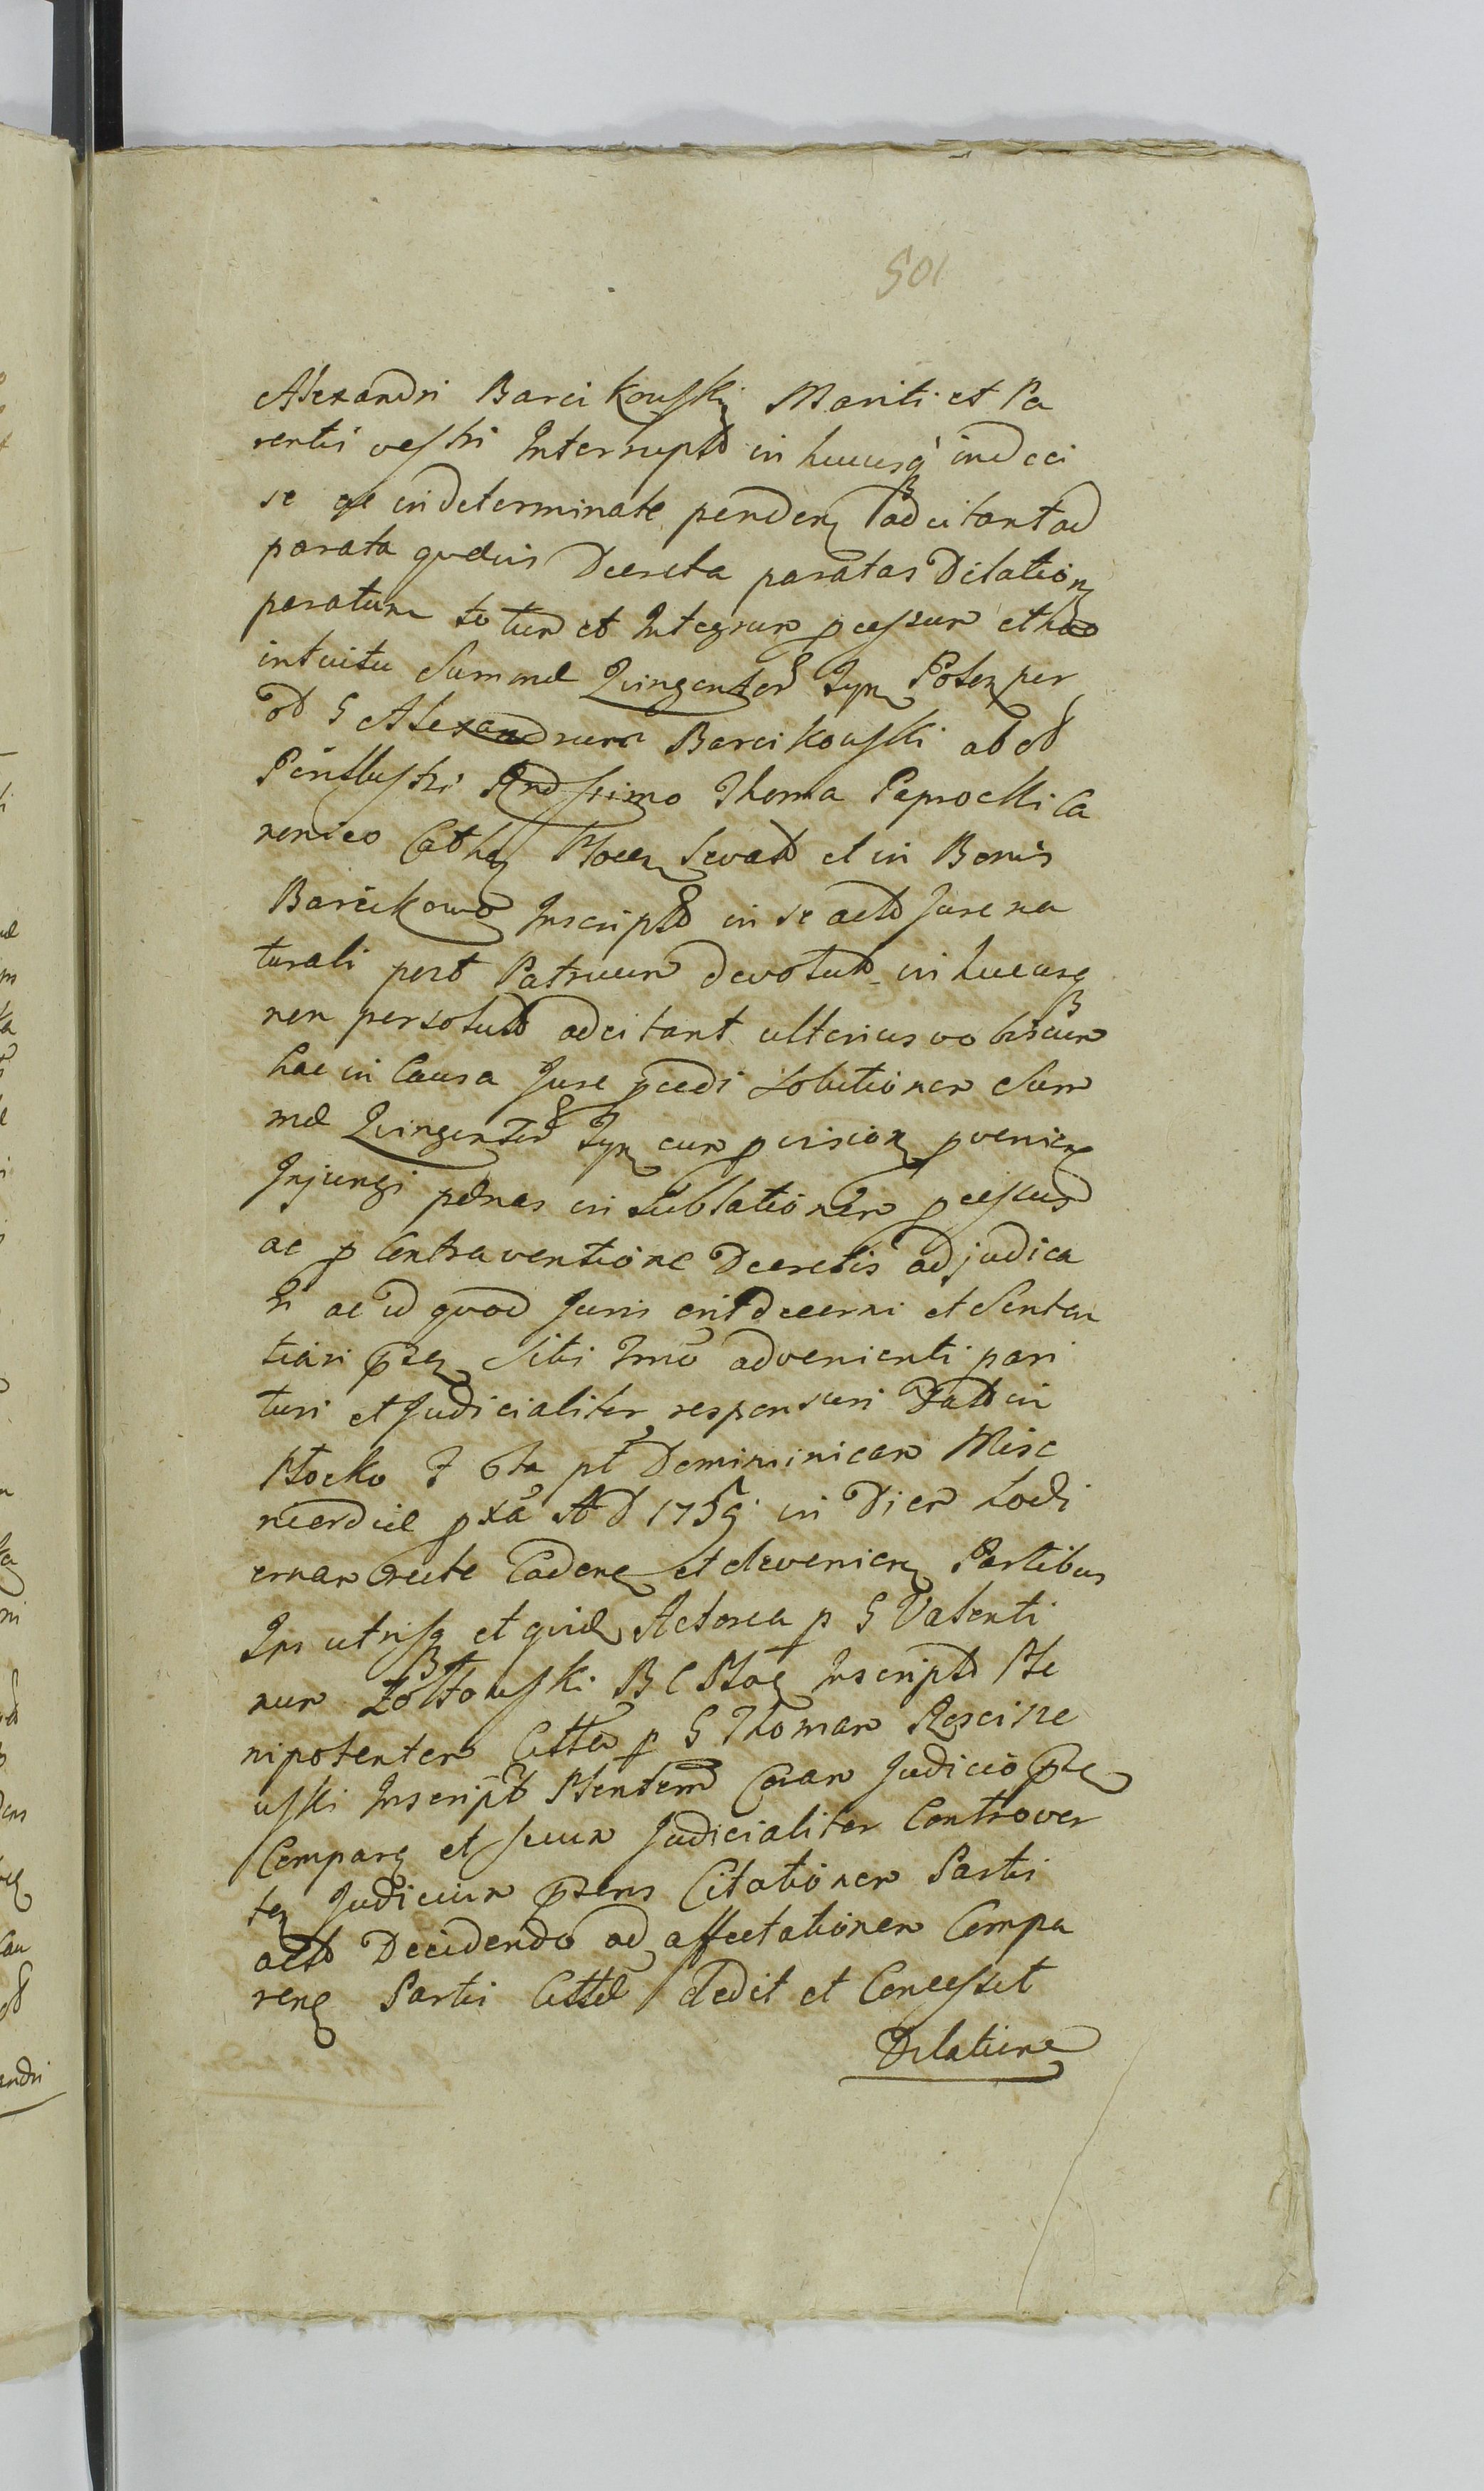 501
Alexandri Barcikowski Mariti et Pa
rentis vestri Interrupto in hucusq indeci
se ac indeterminate penden adcitant ad
parata quaevis Decreta paratas Dilation
paratum totum et Integrum pcessum et hoc
intuitu Summae Quingentor Tyn Polon per
od G Alexandrum Barcikowski ab od
Perillustri Rndssimo Thoma Paprocki Ca
nonico Cathe Plocen levat et in Bonis
Barcikowo Inscript in se acto Jure na
turali post Patruum devolut in hucusq
non persolut adcitant ulterius vobiscum
hac in Causa Jure pcedi Solutionem Sum
mae Quingentor Tyn cum pvision pvenien
Injungi paenas in Sublationem pcessus
ac p Contraventione Decretis adjudica
ri ac id quod Juris erit decerni et Senten
tiari Sitis Trno advenienti pari
turi et Judicialiter responsuri Dat in
Plocko F 6ta pt Dominicam Mise
ricordiae pxa AD 1759 in Diem hodi
ernam recte Caden et devenien Partibus
Ips utrisq et quid Actorea p G Valenti
num Zółtowski B C Ploc Inscript Ple
nipotentem Citta p G Thomam Rościsze
wski Inscript Plentem Coram Judicio
Comparen et secum Judicialiter Controver
ten Judicium pzens Citationem Partis
acto Decidendo ad affectationem Compa
ren Partis Cittae dedit et Concessit
Dilatione